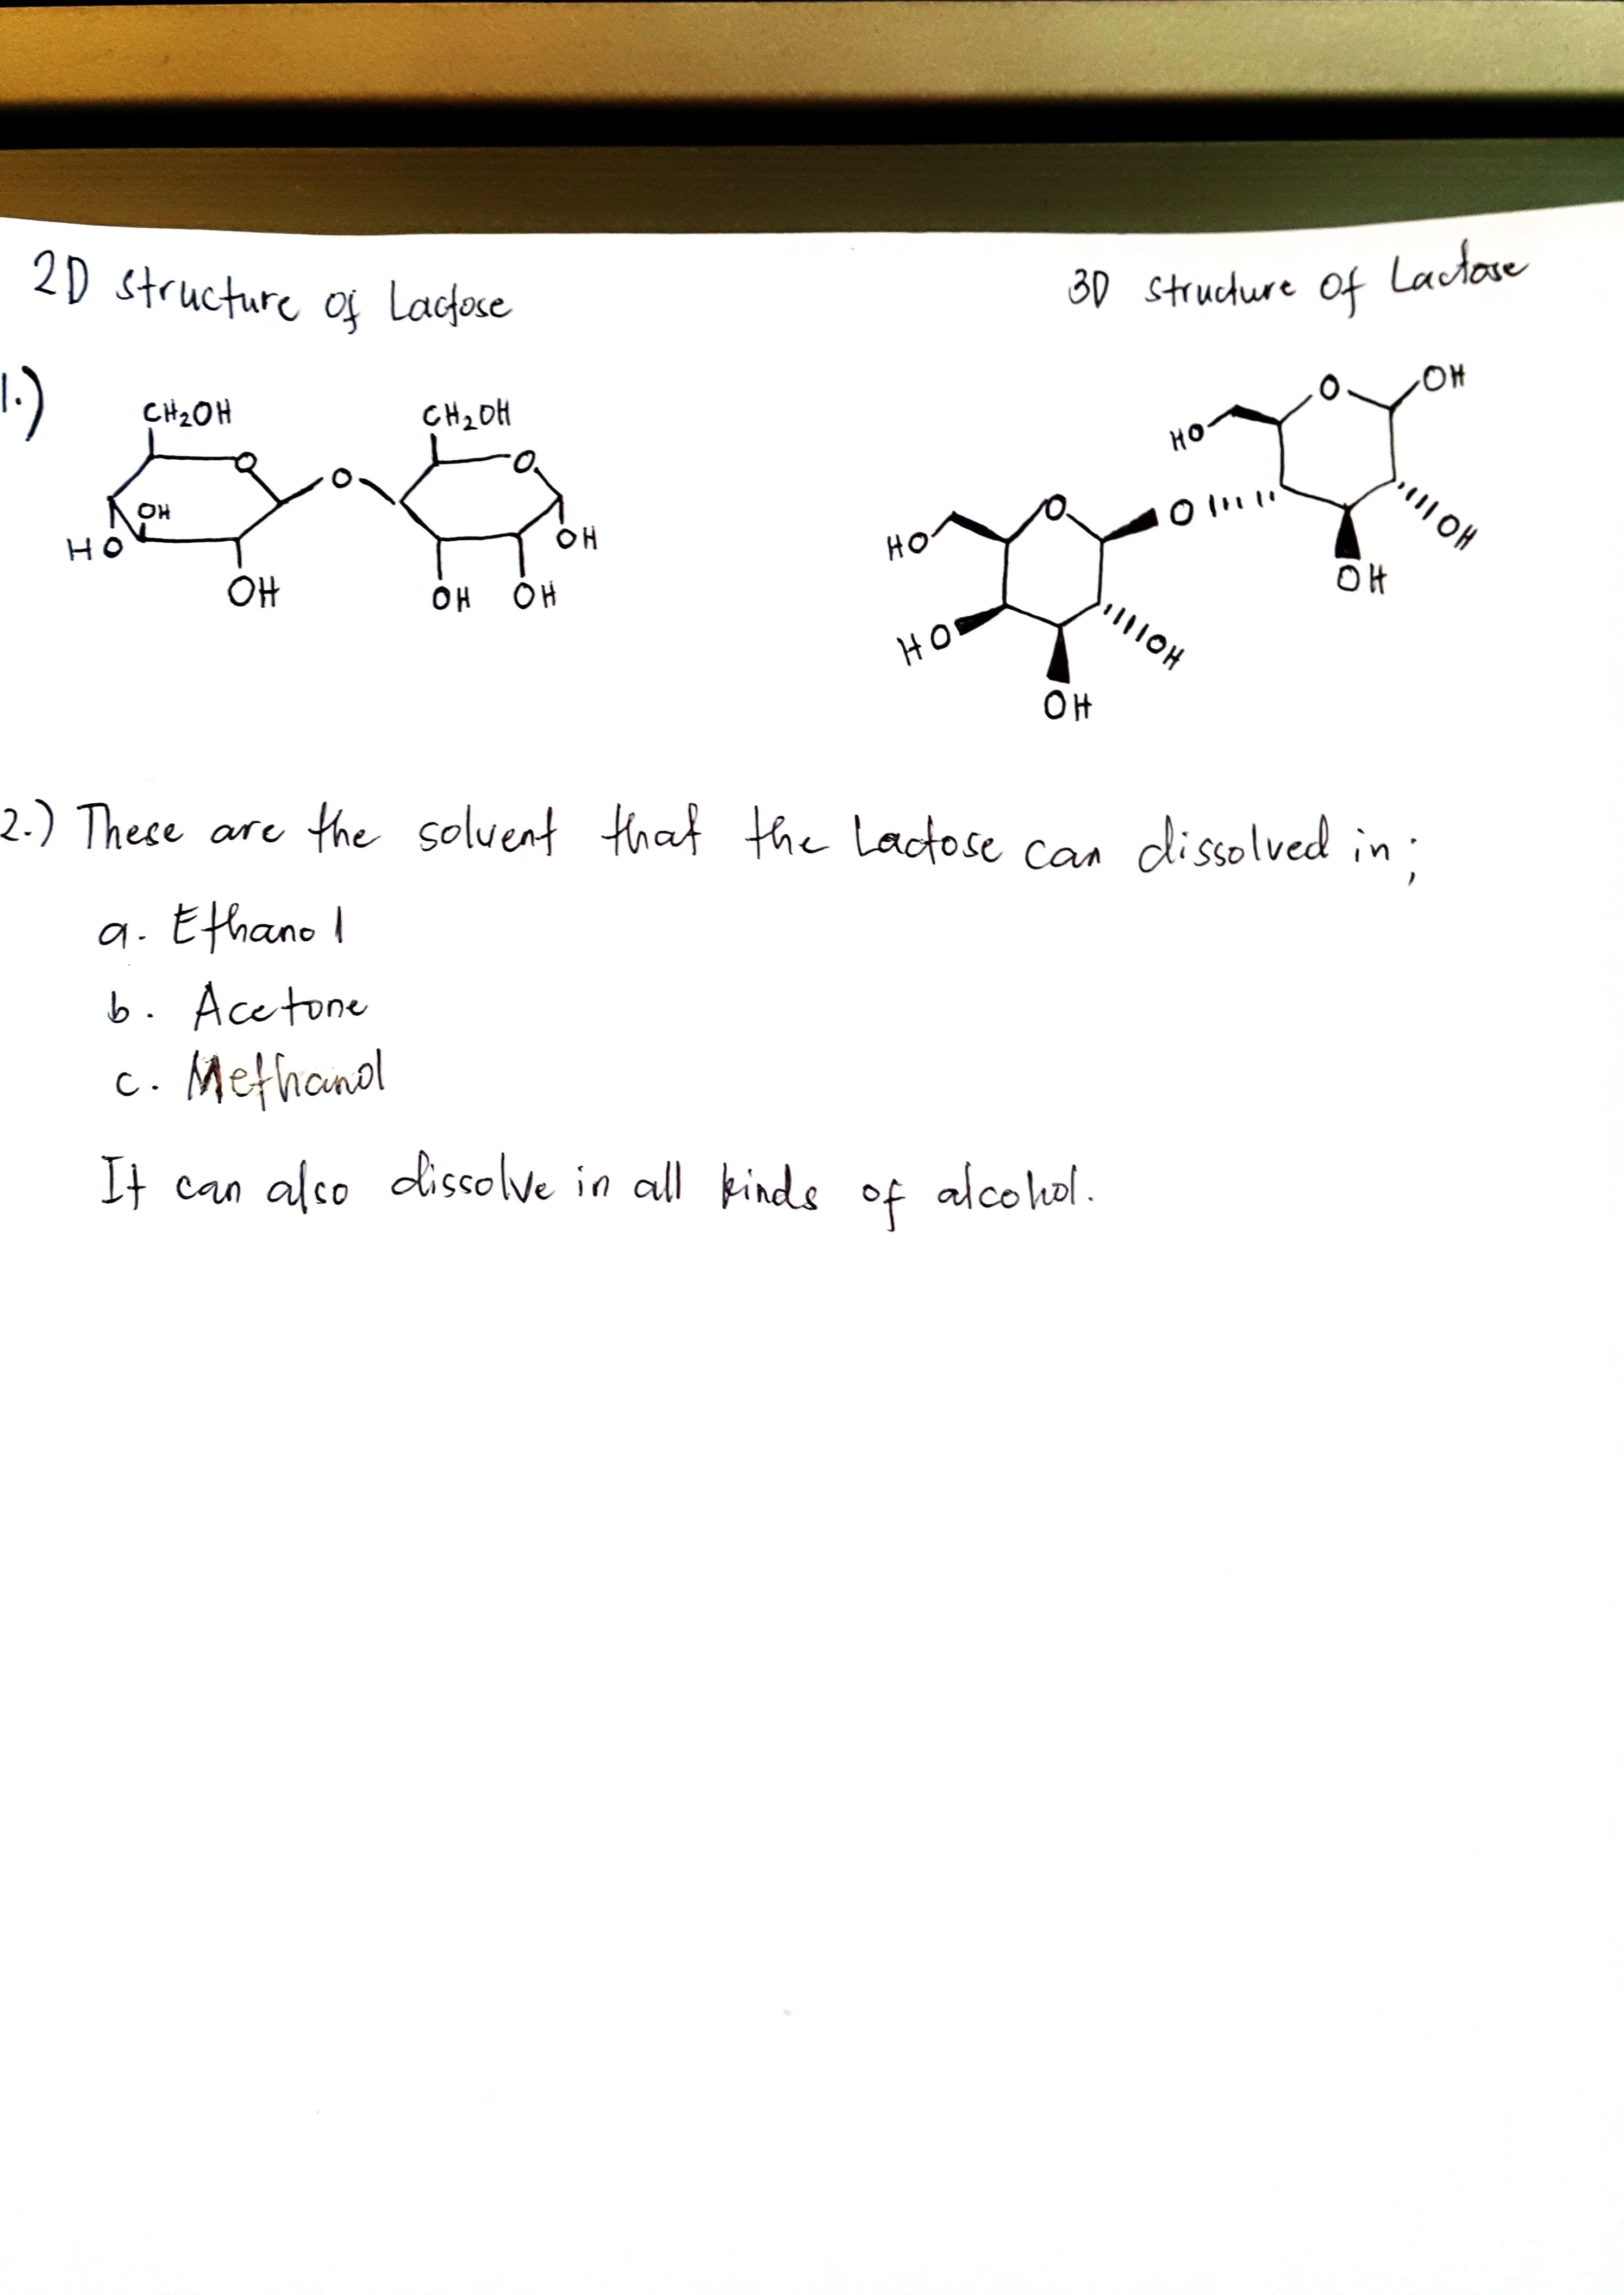 2D structure of Lactose
3D structure of Lactose
1.)
CH₂OH
CH₂OH
O
O
O
OH
HO
OH
OH
OH
OH
O
OH
HO
O
O
HO
OH
OH
HO
OH
OH
2.) These are the solvent that the Lactose can dissolved in;
a. Ethanol
b. Acetone
c. Methanol
It can also dissolve in all kinds of alcohol.